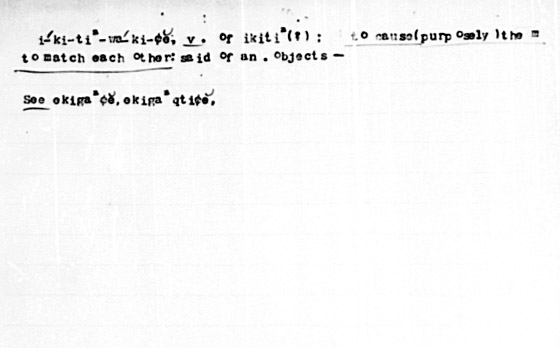 i´ki-tiⁿ-wa´ki-¢ĕ, v. of ikitiⁿ(?): to cause(purposely)the m
to match each other: said of an. objects —
See ekigaⁿ¢ĕ, ekigaⁿqti¢ĕ,